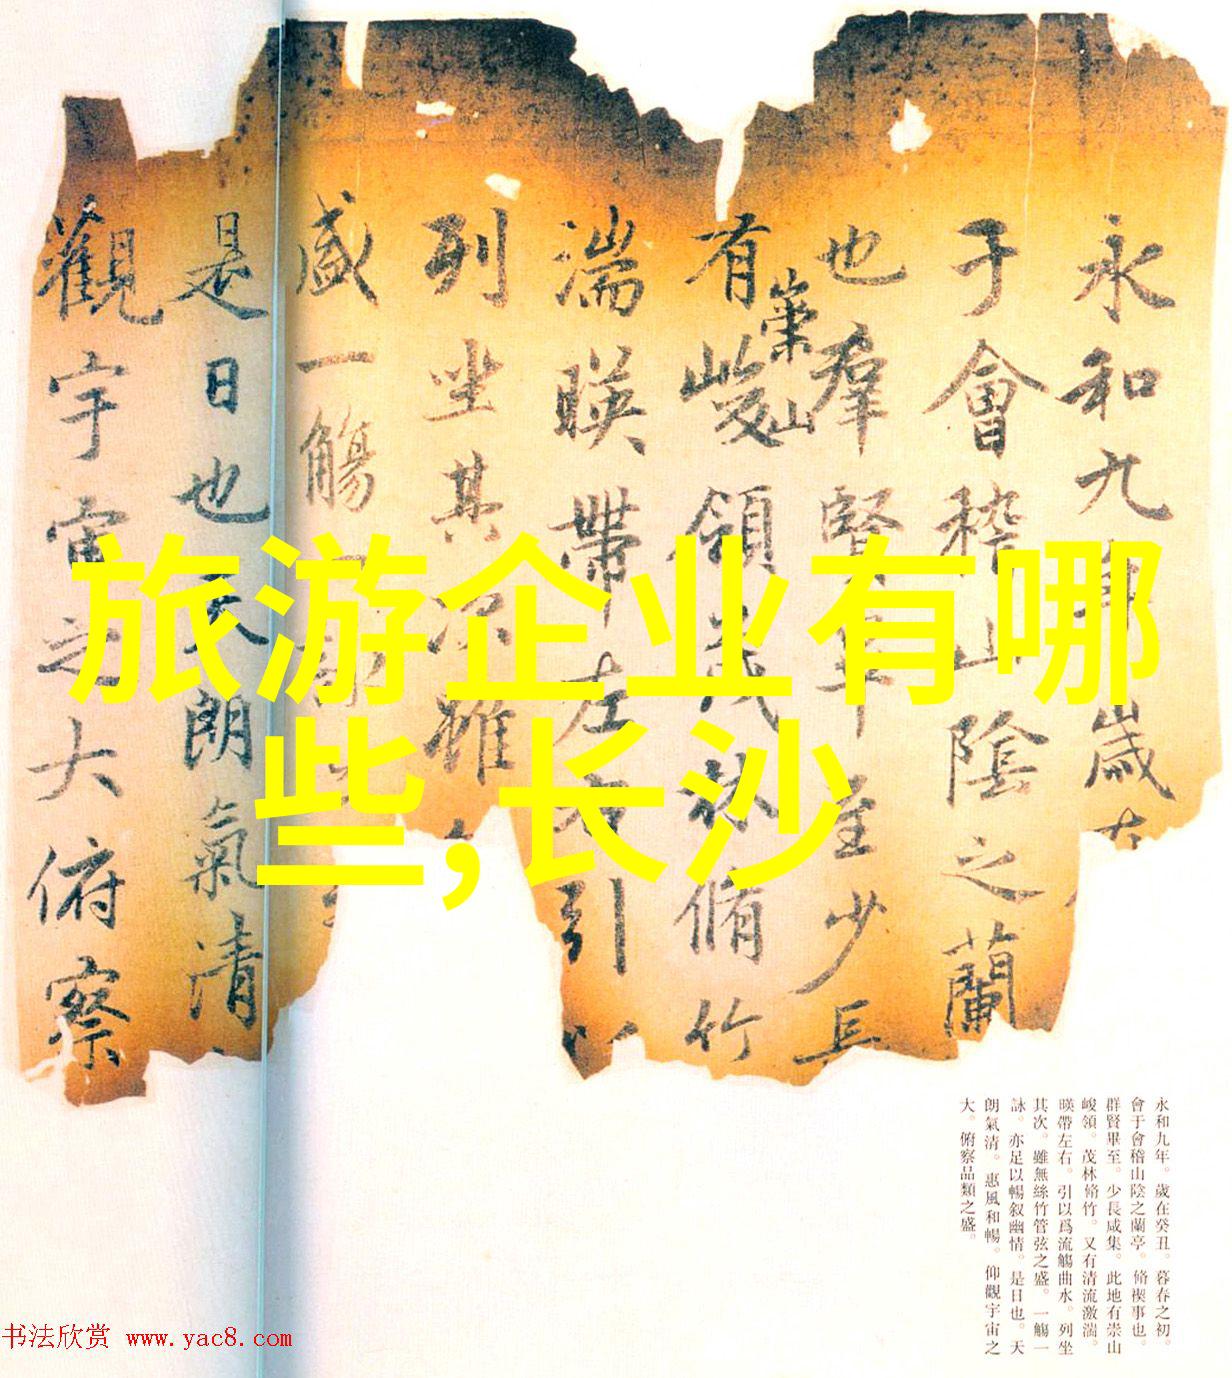 永和九年歲在
于會稽山陰之蘭
也羣賢畢至少長
有崇山
峻領茂林脩竹
湍暎帶左右引以
列坐其次雖
盛一觴一詠
是日也天朗氣清
觀宇宙之大俯察
旅游企业有哪
些,长沙
永和九年。歲在癸丑。暮春之初。
會于會稽山陰之蘭亭。脩禊事也。
群賢畢至。少長咸集。此地有崇山
峻領。茂林脩竹。又有清流激湍。
暎帶左右。引以爲流觴曲水。列坐
其次。雖無絲竹管弦之盛。一觴一
詠。亦足以暢叙幽情。是日也。天
朗氣清。惠風和暢。仰觀宇宙之
大。俯察品類之盛。
书法欣赏 www.yac8.com